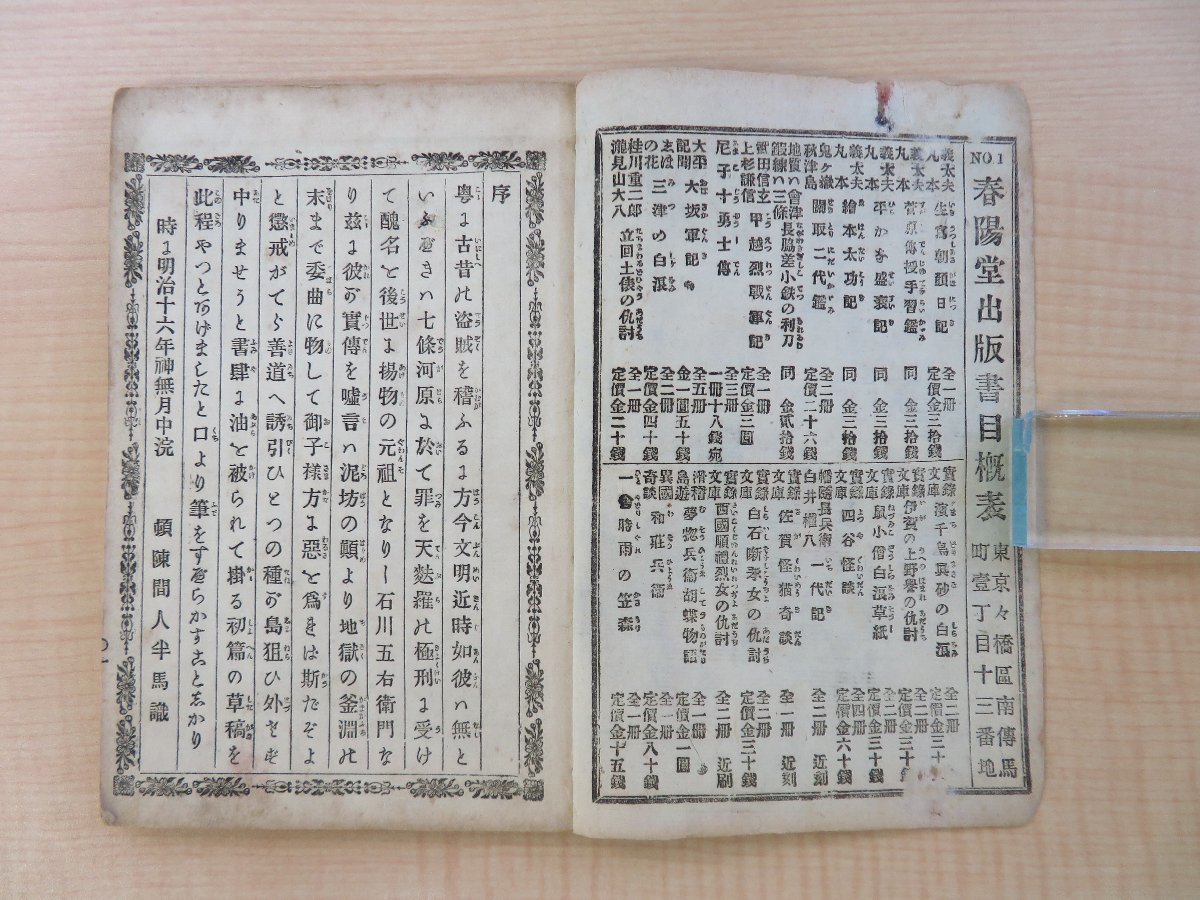 NO.1
春陽堂出版書目概表
東京々橋區南傳馬
町壹丁目十三番地
義太夫
丸本
生寫朝顔日記
全一册
定價金三拾錢
義太夫
丸本
菅原傳授手習鑑
同 金三拾錢
義太夫
丸本
平かな盛衰記
同 金三拾錢
義太夫
丸本
繪本太功記
同 金三拾錢
鬼ヶ嶽
秋津島
關取二代鑑
全二册
定價金二十六錢
地質ハ會津
鍛練ハ三條
長脇差小鉄の利刀
同 金貳拾錢
武田信玄
上杉謙信
甲越烈戰軍記
全一册
定價金三圓
尼子十勇士傳
全三册
一册十八錢宛
大平
記聞
大坂軍記
全五册
金一圓五十錢
の花
三津の白浪
全二册
定價金四十錢
桂川重二郎
瀧見山大八
立回土俵の仇討
全一册
定價金二十錢
實錄
文庫
濱千鳥眞砂の白浪
全二册
定價金三十
實錄
文庫
伊賀の上野譽の仇討
全二册
定價金三十
實錄
文庫
鼠小僧白浪草紙
全二册
定價金三十錢
實錄
文庫
四谷怪談
全四册
定價金六十錢
幡隨長兵衛
白井權八
一代記
全二册 近刻
實錄
文庫
佐賀怪猫奇談
全一册 近刻
實錄
文庫
白石噺孝女の仇討
全二册
定價金三十錢
實錄
文庫
西國順禮烈女の仇討
全二册 近刷
滑稽
島遊
夢惣兵衛胡蝶物語
全一册
定價金一圓
異國
奇談
和莊兵衛
全一册
定價金八十錢
時雨の笠森
全一册
定價金十五錢
序
粤に古昔の盜賊を稽ふるに方今文明近時如彼ハ無と
いふべきハ七條河原に於て罪を天麩羅の極刑に受け
て醜名を後世に揚物の元祖となりし石川五右衛門な
り茲に彼が實傳を嘘言ハ泥坊の顛より地獄の釜淵の
末まで委曲に物して御子樣方に惡を爲さは斯だぞよ
と懲戒がてら善道へ誘引ひとつの種が島狙ひ外さず
中りませうと書肆に油を被られて掛る初篇の草稿を
此程やつとあげましたと口より筆をすべらかすことしかり
時に明治十六年神無月中浣
頓陳間人半馬識